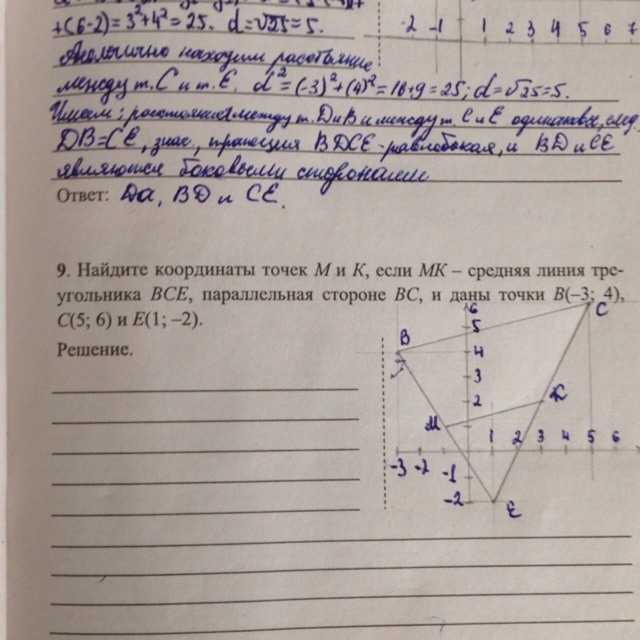 +(6-2)=3²+4²=25. d=√25=5.
-2 -1 1 2 3 4 5 6 7
Аналогично находим расстояние
между т. С и т. Е. d²=(-3)²+(4)²=16+9=25; d=√25=5.
Имеем: расстояния между т. D и B и между т. С и Е одинаковы, след.
DB=CE, знач, трапеция BDCE-равнобокая, и BD и CE
являются боковыми сторонами
Ответ: Да, BD и CE.
9. Найдите координаты точек M и K, если MK – средняя линия тре-
угольника BCE, параллельная стороне BC, и даны точки B(–3; 4),
C(5; 6) и E(1; –2).
Решение.
6
C
5
B
4
3
2
K
M
1 2 3 4 5 6
-3 -2 -1
-2
E